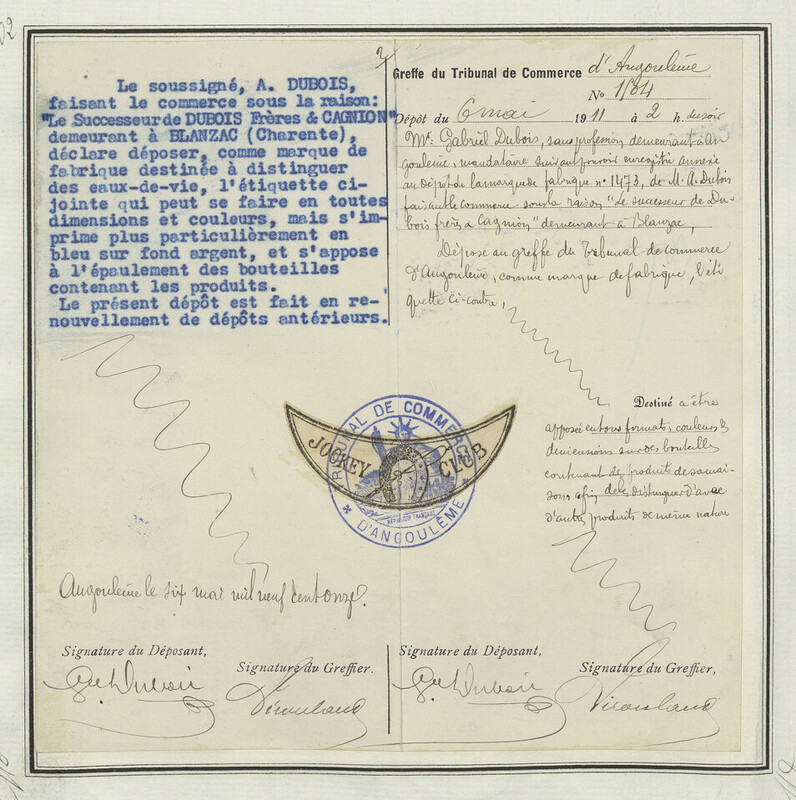 Le soussigné, A. DUBOIS,
faisant le commerce sous la raison:
"Le Successeur de DUBOIS Frères & CAGNION"
demeurant à BLANZAC (Charente),
déclare déposer, comme marque de
fabrique destinée à distinguer
des eaux-de-vie, l'étiquette ci-
jointe qui peut se faire en toutes
dimensions et couleurs, mais s'im-
prime plus particulièrement en
bleu sur fond argent, et s'appose
à l'épaulement des bouteilles
contenant les produits.
Le présent dépôt est fait en re-
nouvellement de dépôts antérieurs.
Angoulême le six mai mil neuf cent onze.
Signature du Déposant,
Signature du Greffier.
2
Greffe du Tribunal de Commerce d'Angoulême
No 1584
Dépôt du 6 mai 1911 à 2 h. du soir
Mr. Gabriel Dubois, sans profession demeurant à An
goulême, mandataire suivant pouvoir enregistré annexé
au dépôt de la marque de fabrique n° 1473, de M. A. Dubois
faisant le commerce sous la raison "Le successeur de Du-
bois frères & Cagnion" demeurant à Blanzac,
Dépose au greffe du Tribunal de commerce
d'Angoulême, comme marque de fabrique, l'éti
quette ci-contre,
Destiné a être
apposée en tous formats, couleurs &
dimensions sur des bouteilles
contenant des produits de sa mai-
son afin de les distinguer d'avec
d'autres produits de même nature
Signature du Déposant,
Signature du Greffier,
JOCKEY CLUB
TRIBUNAL DE COMMERCE
D'ANGOULÊME
REPUBLIQUE FRANÇAISE